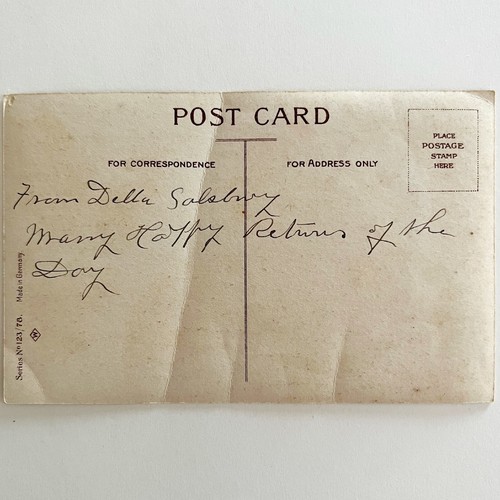 POST CARD
FOR CORRESPONDENCE
FOR ADDRESS ONLY
PLACE
POSTAGE
STAMP
HERE
From Della Salsbury
Many Happy Returns of the
Day
Series Nº 123/78. Made in Germany